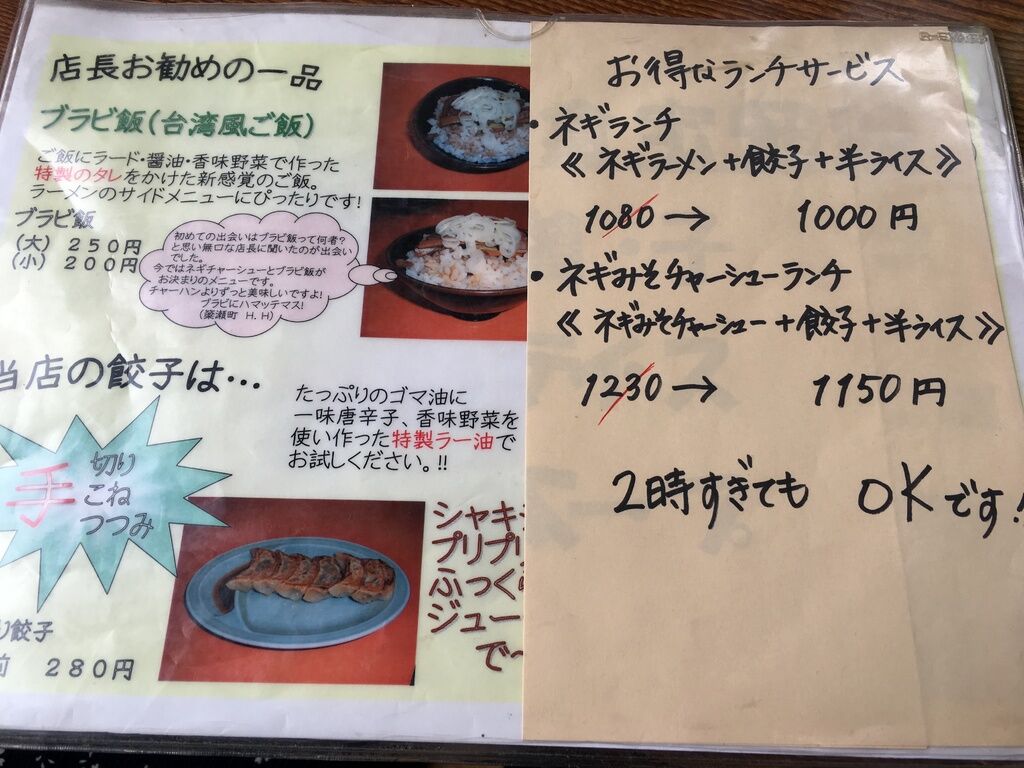 店長お勧めの一品
ブラビ飯(台湾風ご飯)
ご飯にラード・醤油・香味野菜で作った
特製のタレをかけた新感覚のご飯。
ラーメンのサイドメニューにぴったりです!
ブラビ飯
(大) 250円
(小) 200円
初めての出会いはブラビ飯って何者?
と思い無口な店長に聞いたのが出会い
でした。
今ではネギチャーシューとブラビ飯が
お決まりのメニューです。
チャーハンよりずっと美味しいですよ!
ブラビにハマッテマス!
(簗瀬町 H.H)
当店の餃子は…
手
切り
こね
つつみ
たっぷりのゴマ油に
一味唐辛子、香味野菜を
使い作った特製ラー油で
お試しください。!!
シャキ
プリプリ
ふっく
ジュー
で~
り餃子
前 280円
お得なランチサービス
・ネギランチ
《ネギラーメン+餃子+半ライス》
1080→ 1000円
・ネギみそチャーシューランチ
《ネギみそチャーシュー+餃子+半ライス》
1230→ 1150円
2時すぎても OKです!